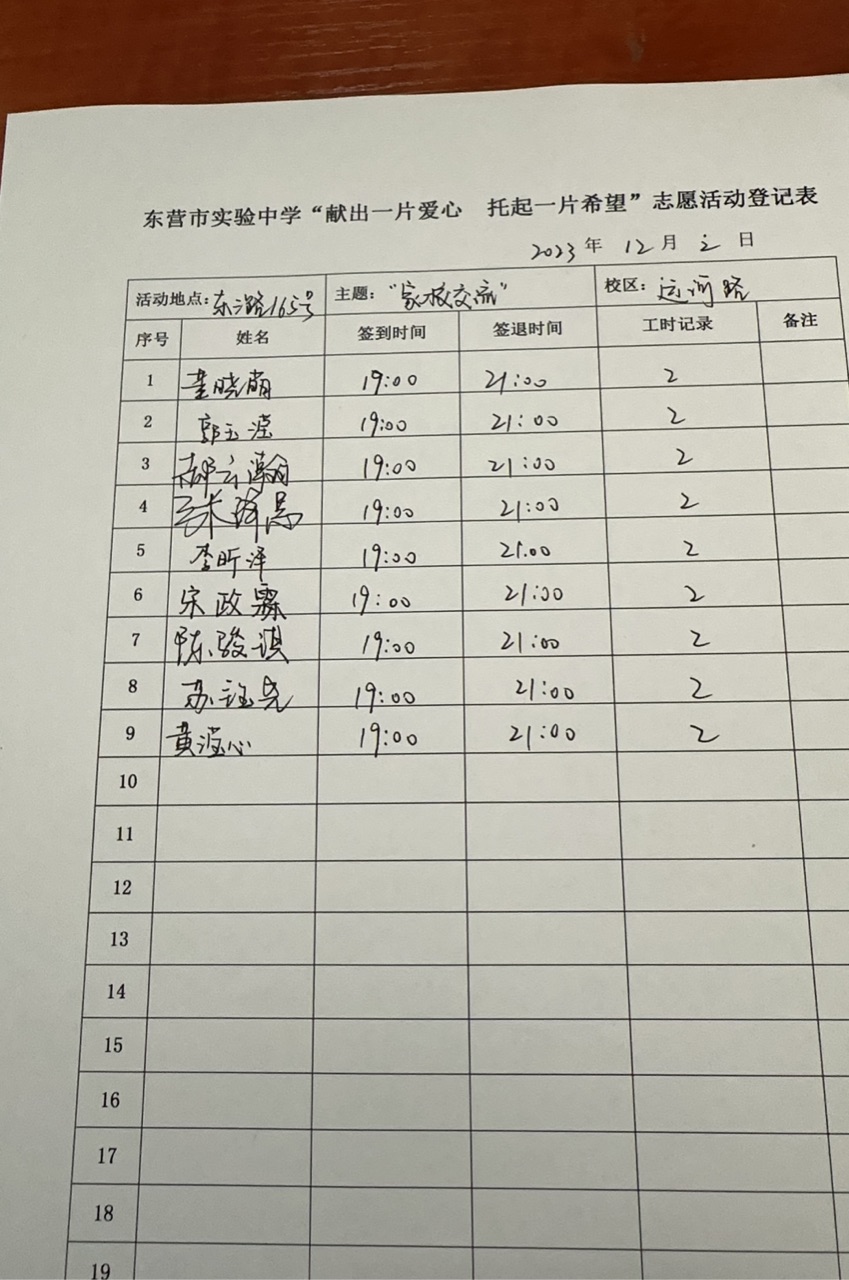 东营市实验中学“献出一片爱心 托起一片希望”志愿活动登记表
2023 年 12 月 2 日
活动地点: 东二路165号 主题: “家校交流” 校区: 运河路
序号 姓名 签到时间 签退时间 工时记录 备注
1 董晓萌 19:00 21:00 2
2 郭玉滢 19:00 21:00 2
3 郝 19:00 21:00 2
4 19:00 21:00 2
5 李昕泽 19:00 21:00 2
6 宋政霖 19:00 21:00 2
7 陈骏琪 19:00 21:00 2
8 苏 19:00 21:00 2
9 黄滢心 19:00 21:00 2
10
11
12
13
14
15
16
17
18
19